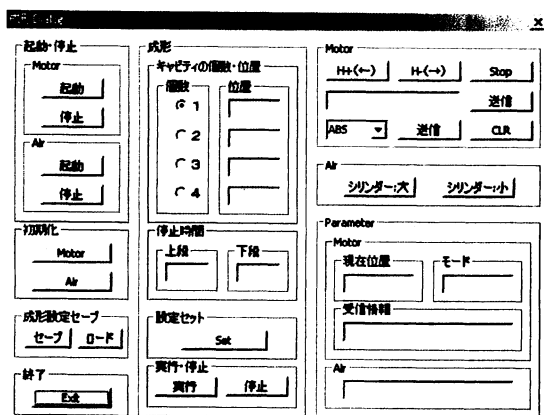 起動・停止
Motor
起動
停止
Air
起動
停止
初期化
Motor
Air
成形設定セーブ
セーブ ロード
終了
Exit
成形
キャビティの個数・位置
個数 位置
1
2
3
4
停止時間
上段 下段
設定セット
Set
実行・停止
実行 停止
Motor
H+(←) H-(→) Stop
送信
ABS 送信 CLR
Air
シリンダー:大 シリンダー:小
Parameter
Motor
現在位置 モード
受信情報
Air